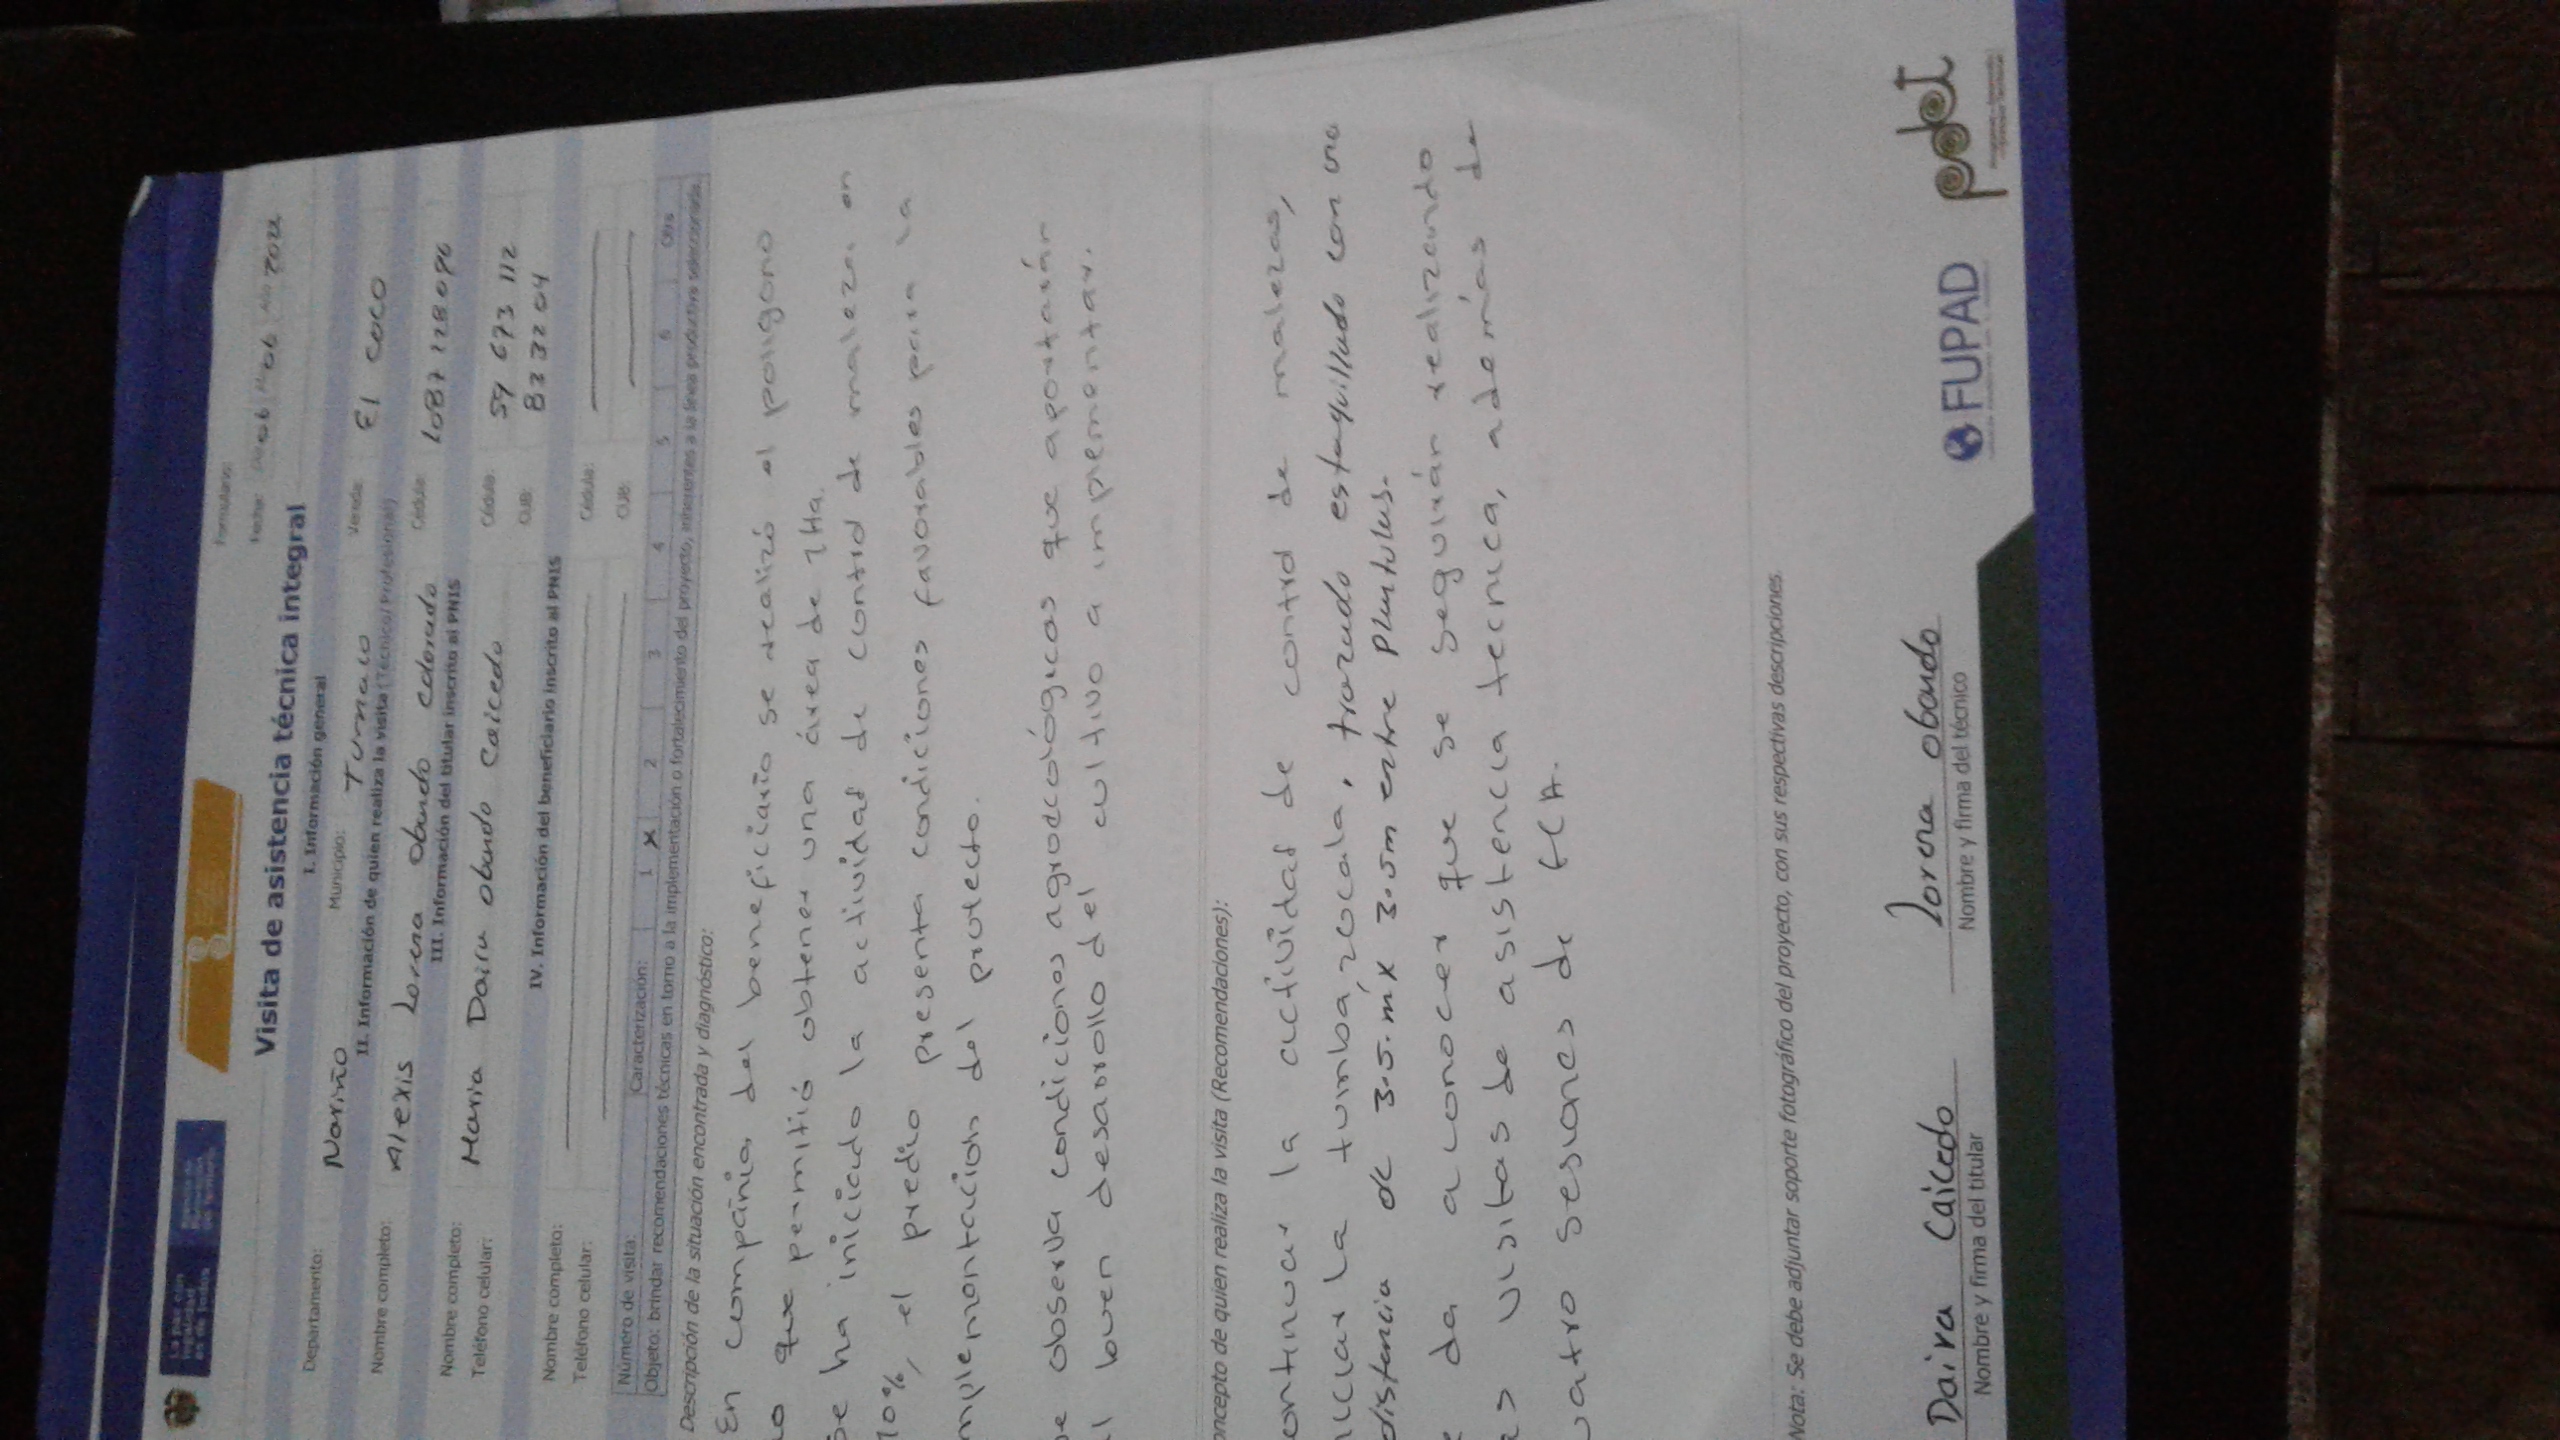 La paz con
legalidad
es de todos
Formulario:
Visita de asistencia técnica integral
Fecha: D 06 M 06 A
I. Información general
Departamento: Nariño Municipio: Tumaco Vereda: El coco
II. Información de quien realiza la visita (Técnico/Profesional)
Nombre completo: Alexis Lorena Obando colorado Cédula: 1087128096
III. Información del titular inscrito al PNIS
Nombre completo: Maria Daira obando Caicedo Cédula: 59 673 112
Teléfono celular: CUB: 8233204
IV. Información del beneficiario inscrito al PNIS
Nombre completo: Cédula:
Teléfono celular: CUB:
Número de visita: Caracterización: 1 X 2 3 4 5 6 Otra
Objeto: brindar recomendaciones técnicas en torno a la implementación o fortalecimiento del proyecto, inherentes a la línea productiva seleccionada.
Descripción de la situación encontrada y diagnóstico:
En compañia del beneficiario se realizó el poligono
lo que permitió obtener una área de 2Ha.
se ha iniciado la actividad de control de maleza en
10%, el predio presenta condiciones favorables para la
mplementación del proyecto.
se observa condiciones agroecológicas que aportarán
l buen desarrollo del cultivo a implementar.
oncepto de quien realiza la visita (Recomendaciones):
continuar la actividad de control de malezas,
niciar la tumba, zocala, trazado estaquillado con una
distancia de 3.5.m x 3.5m entre plantulas.
e da a conocer que se seguirán realizando
as visitas de asistencia tecnica, además de
uatro sesiones de ECA.
Nota: Se debe adjuntar soporte fotográfico del proyecto, con sus respectivas descripciones.
Daira Caicedo lorena obando
Nombre y firma del titular Nombre y firma del técnico
FUPAD pdet